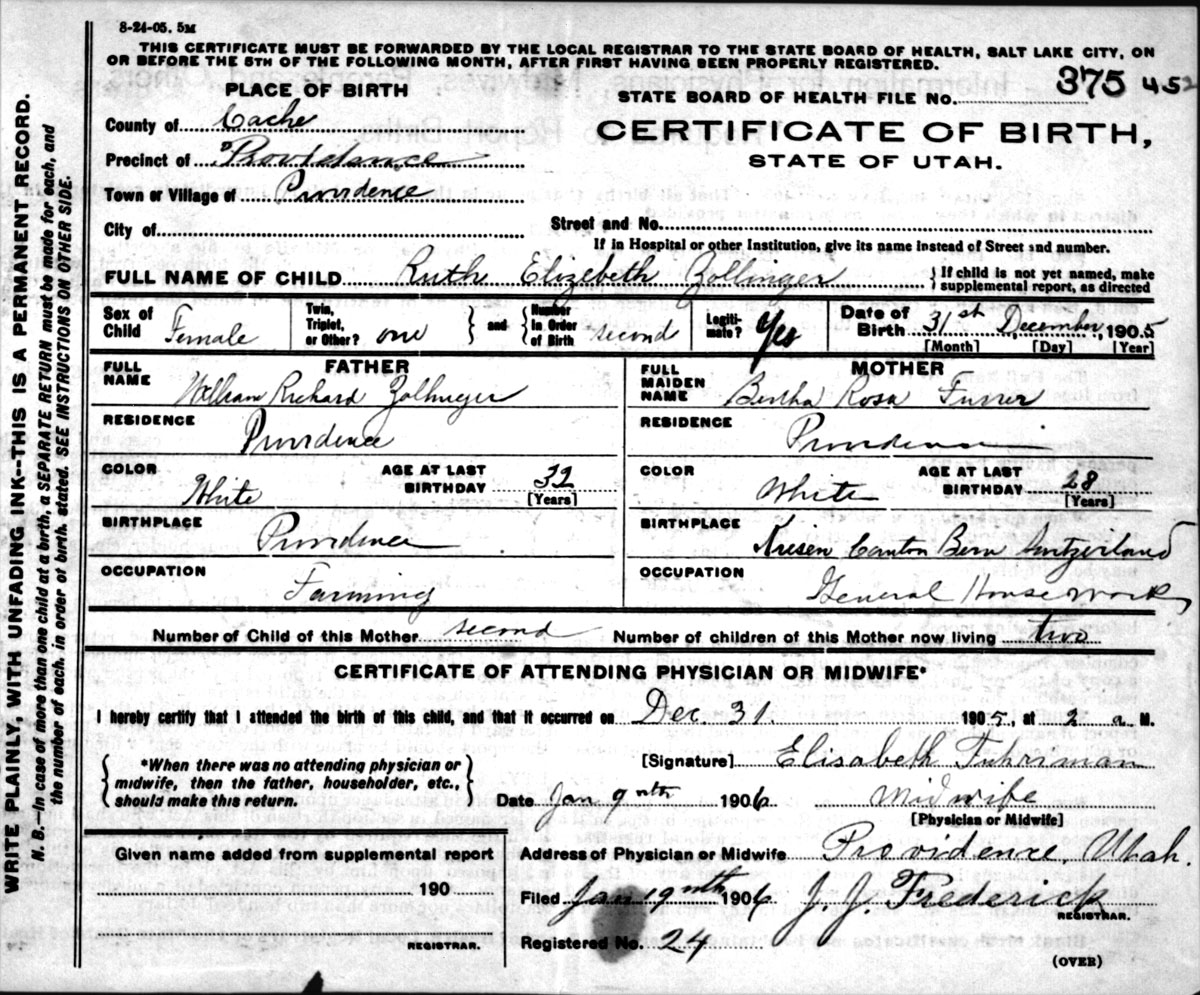 8-24-05. 5M
THIS CERTIFICATE MUST BE FORWARDED BY THE LOCAL REGISTRAR TO THE STATE BOARD OF HEALTH, SALT LAKE CITY, ON
OR BEFORE THE 5TH OF THE FOLLOWING MONTH, AFTER FIRST HAVING BEEN PROPERLY REGISTERED.
WRITE PLAINLY, WITH UNFADING INK--THIS IS A PERMANENT RECORD.
N. B.--In case of more than one child at a birth, a SEPARATE RETURN must be made for each, and
the number of each, in order of birth, stated. SEE INSTRUCTIONS ON OTHER SIDE.
PLACE OF BIRTH
County of Cache
Precinct of Providence
Town or Village of Providence
City of
STATE BOARD OF HEALTH FILE NO. 375 452
CERTIFICATE OF BIRTH,
STATE OF UTAH.
Street and No.
If in Hospital or other Institution, give its name instead of Street and number.
FULL NAME OF CHILD Ruthe Elizebeth Zollinger
If child is not yet named, make
supplemental report, as directed
Sex of Child Female
Twin, Triplet, or Other? one
and
Number in Order of Birth second
Legitimate? Yes
Date of Birth 31st December, 1905
[Month] [Day] [Year]
FATHER
FULL NAME William Richard Zollinger
RESIDENCE Providence
COLOR White
AGE AT LAST BIRTHDAY 32
[Years]
BIRTHPLACE Providence
OCCUPATION Farming
MOTHER
FULL MAIDEN NAME Bertha Rosa Furrer
RESIDENCE Providence
COLOR White
AGE AT LAST BIRTHDAY 28
[Years]
BIRTHPLACE Kiesen Canton Bern Switzerland
OCCUPATION General Housework
Number of Child of this Mother second Number of children of this Mother now living two
CERTIFICATE OF ATTENDING PHYSICIAN OR MIDWIFE*
I hereby certify that I attended the birth of this child, and that it occurred on Dec. 31. 1905, at 2 a M.
*When there was no attending physician or
midwife, then the father, householder, etc.,
should make this return.
[Signature] Elisabeth Fuhriman
Date Jan 9nth 1906 Midwife
[Physician or Midwife]
Given name added from supplemental report
190
REGISTRAR.
Address of Physician or Midwife Providence, Utah.
Filed Jan 19nth 1906 J. J. Frederick
REGISTRAR.
Registered No. 24
(OVER)